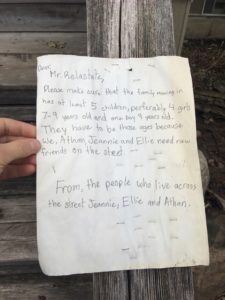 Dear,
Mr. Relastate,
Please make sure that the family moving in
has at least 5 children, perferably 4 girls
7-9 years old and one boy 4 years old.
They have to be those ages because
we, Athan, Jeannie and Ellie need new
friends on the street.
From, the people who live across
the street Jeannie, Ellie and Athan.